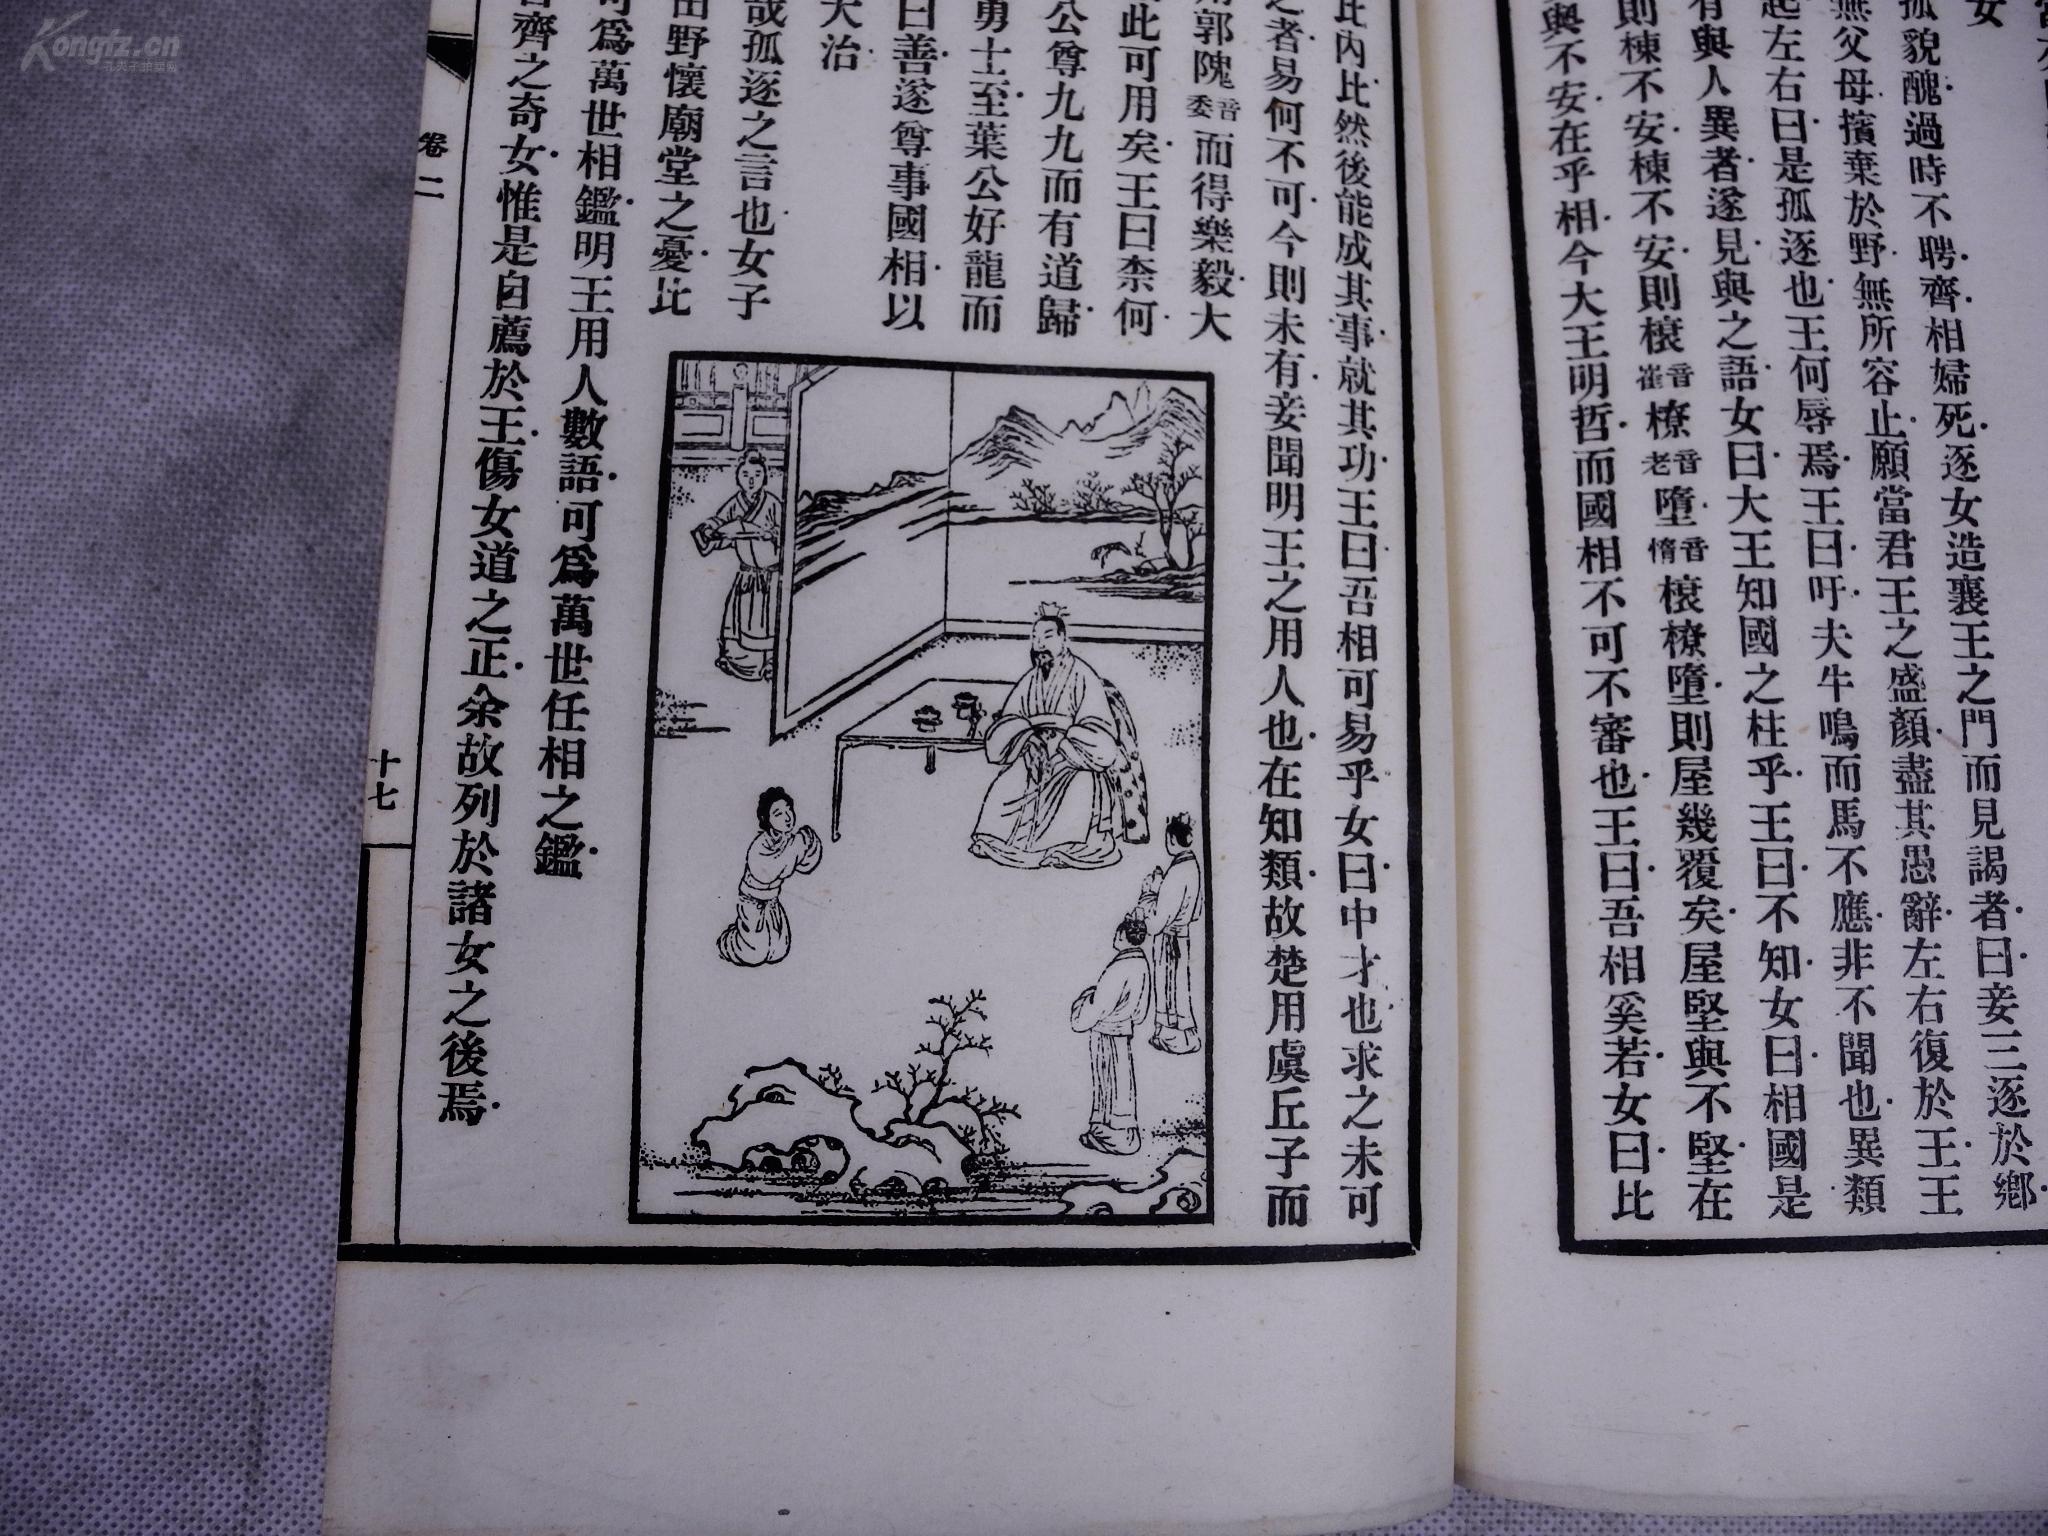 女
孤貌醜過時不聘齊相婦死逐女造襄王之門而見謁者曰妾三逐於鄉
無父母擯棄於野無所容止願當君王之盛顏盡其愚辭左右復於王王
起左右曰是孤逐也王何辱焉王曰吁夫牛鳴而馬不應非不聞也異類
有與人異者遂見與之語女曰大王知國之柱乎王曰不知女曰相國是
則棟不安棟不安則榱音崔橑音老墮音惰榱橑墮則屋幾覆矣屋堅與不堅在
與不安在乎相今大王明哲而國相不可不審也王曰吾相奚若女曰比
比內比然後能成其事就其功王曰吾相可易乎女曰中才也求之未可
之者易何不可今則未有妾聞明王之用人也在知類故楚用虞丘子而
用郭隗音委而得樂毅大
此可用矣王曰柰何
公尊九九而有道歸
勇士至葉公好龍而
曰善遂尊事國相以
大治
哉孤逐之言也女子
田野懷廟堂之憂比
可為萬世相鑑明王用人數語可為萬世任相之鑑
齊之奇女惟是自薦於王傷女道之正余故列於諸女之後焉
卷二
十七
Kongfz.cn
孔夫子拍卖网